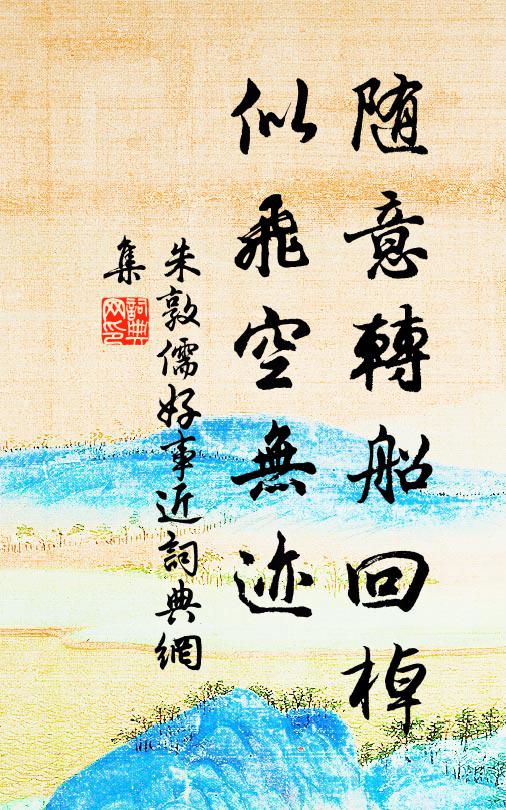 随意轉船回棹
似飛空無迹
朱敦儒好事近詞典網
集
詞典
网印